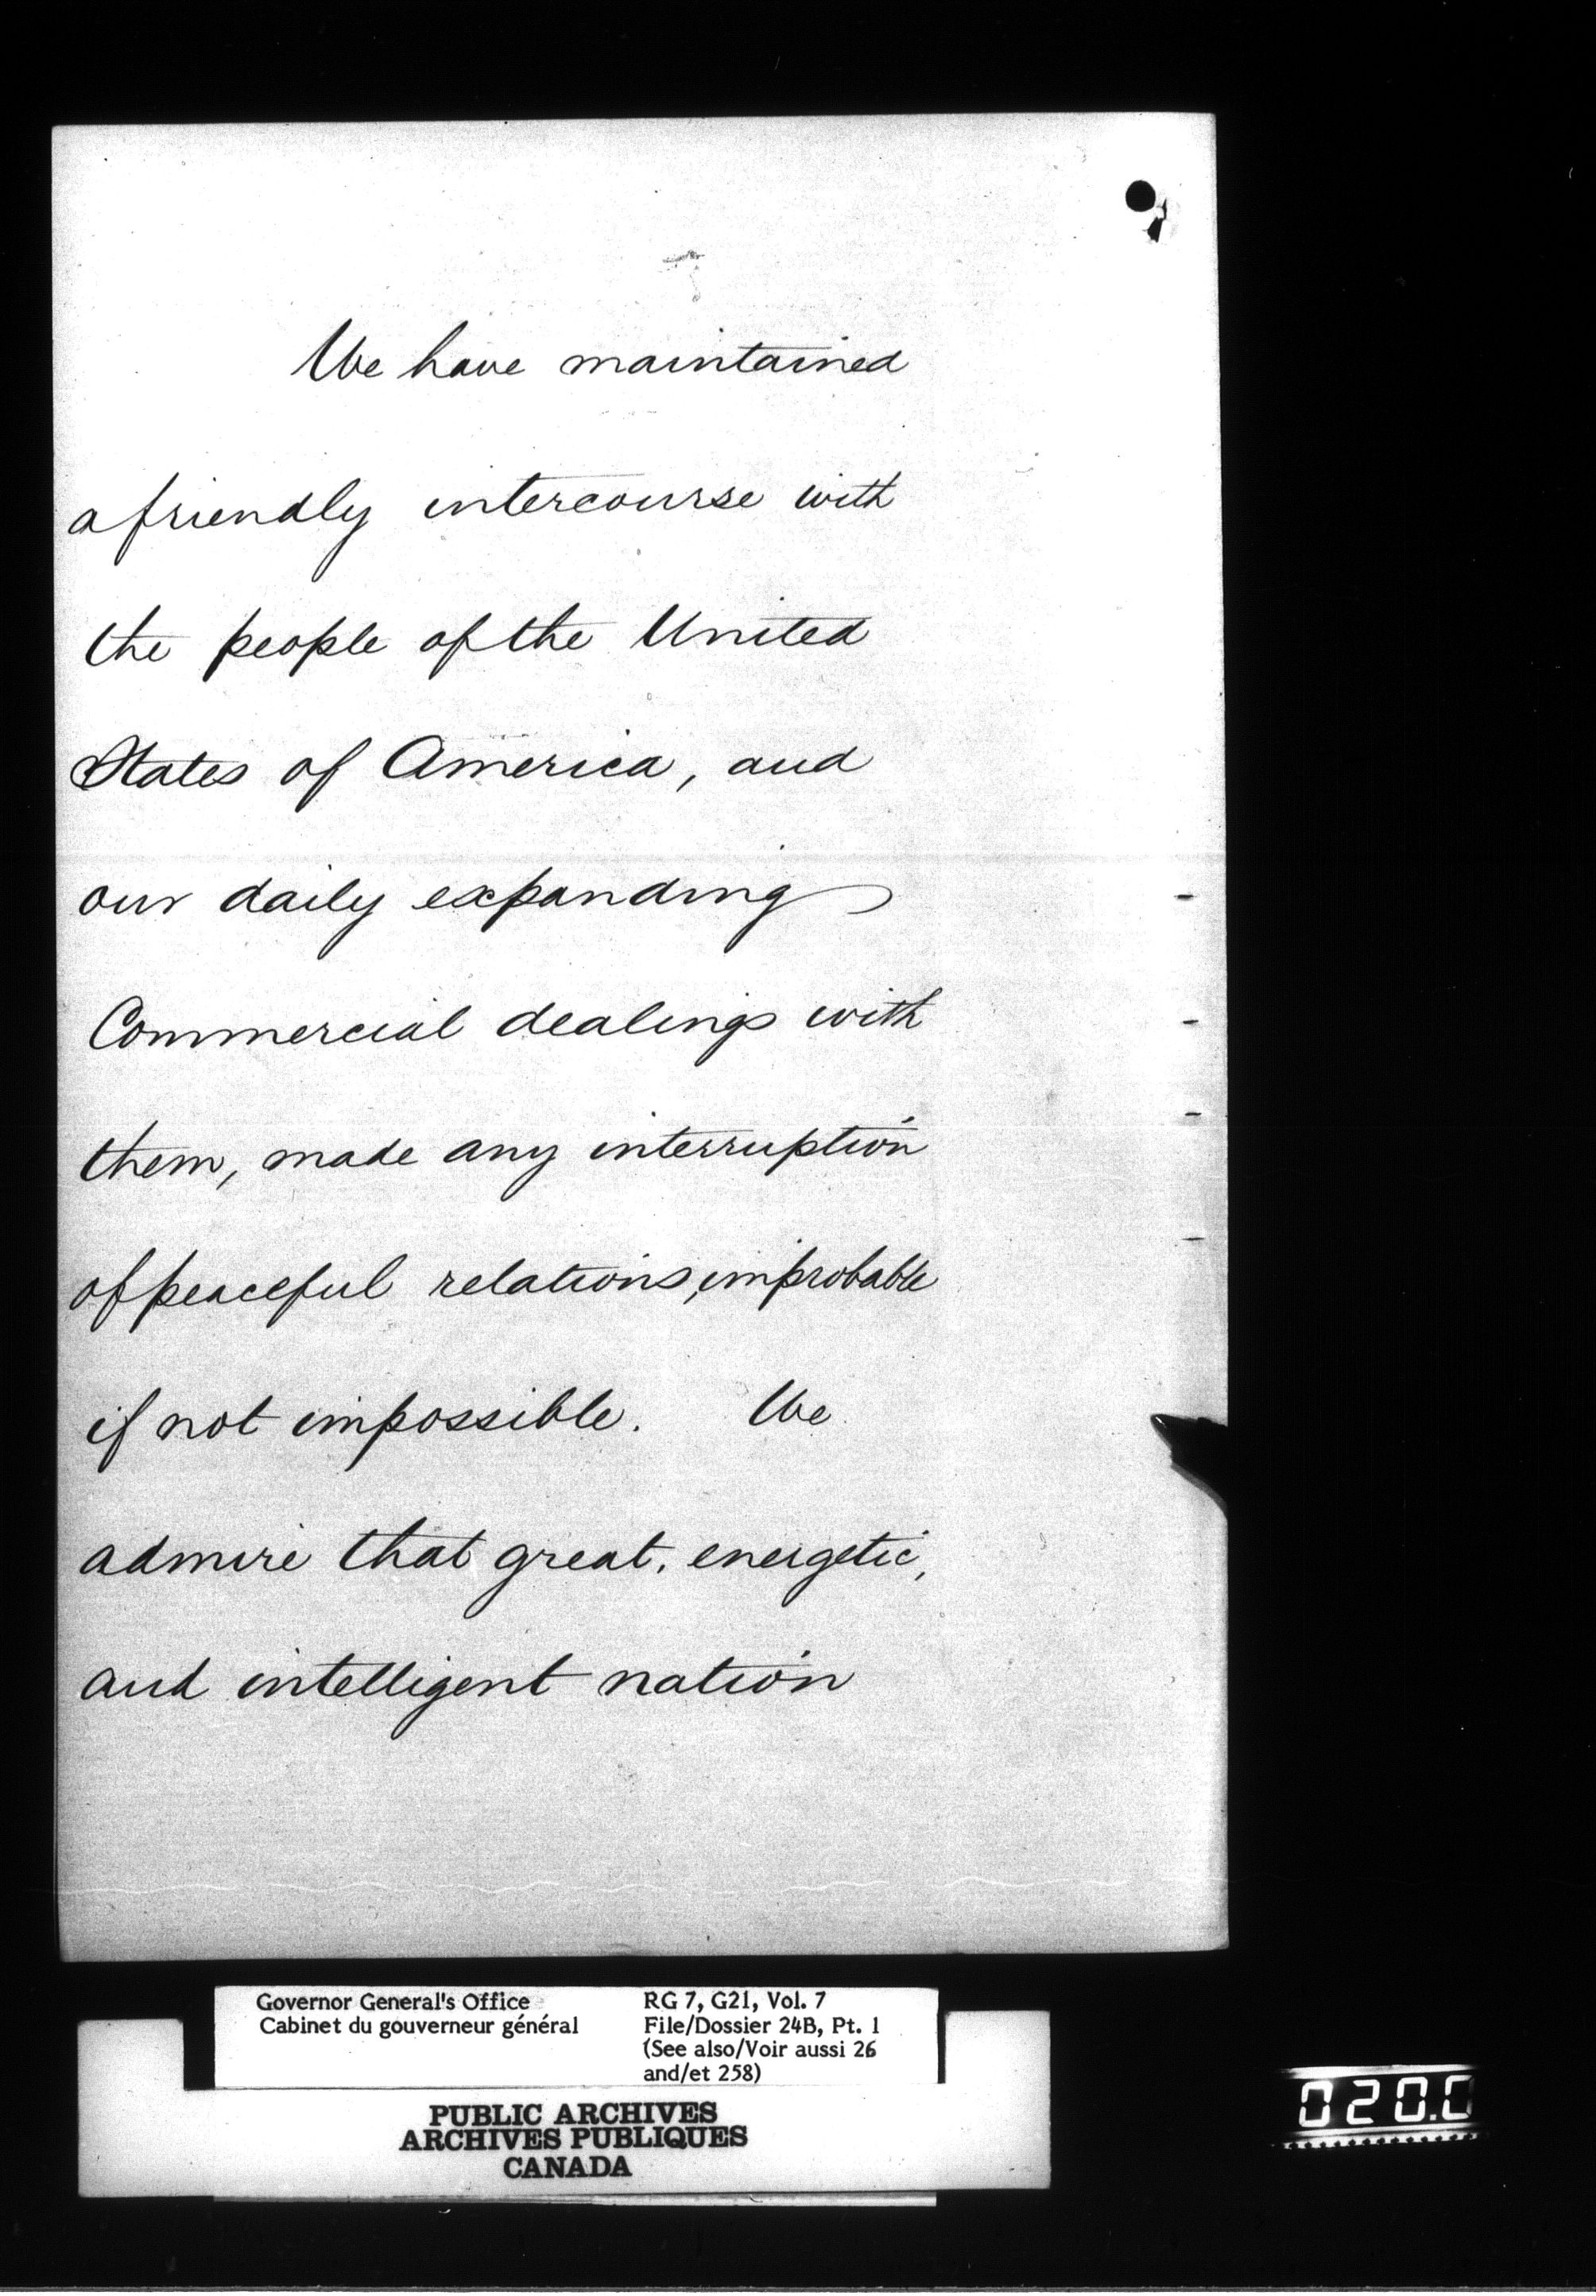 We have maintained
a friendly intercourse with
the people of the United
States of America, and
our daily expanding
Commercial dealings with
them, made any interruption
of peaceful relations, improbable
if not impossible. We
admire that great, energetic,
and intelligent nation
Governor General's Office
Cabinet du gouverneur général
RG 7, G21, Vol. 7
File/Dossier 24B, Pt. 1
(See also/Voir aussi 26
and/et 258)
PUBLIC ARCHIVES
ARCHIVES PUBLIQUES
CANADA
020.0